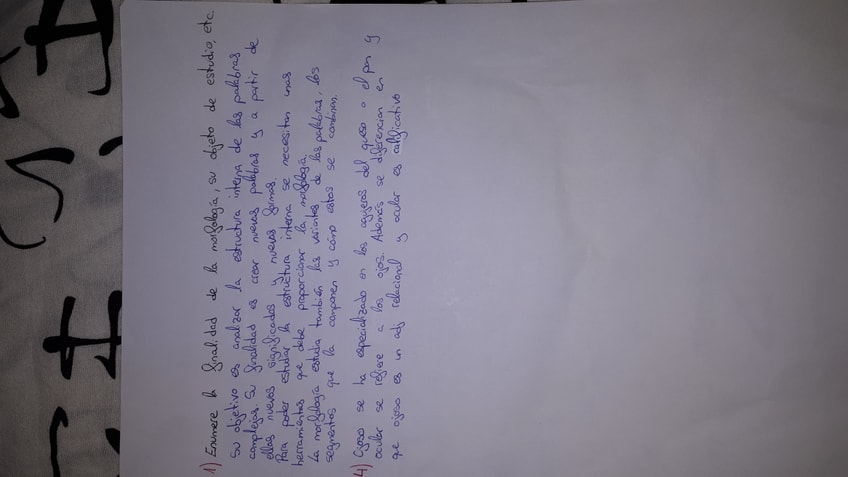 1) Enumere la finalidad de la morfología, su objeto de estudio, etc.
Su objetivo es analizar la estructura interna de las palabras
complejas. Su finalidad es crear nuevas palabras y a partir de
ellas nuevos significados y nuevas formas.
Para poder estudiar la estructura interna se necesitan unas
herramientas que debe proporcionar la morfología.
La morfología estudia también las variantes de las palabras, los
segmentos que la componen y cómo estos se combinan.
4) Ojoso se ha especializado en los agujeros del queso o el pan y
ocular se refiere a los ojos. Además se diferencian en
que ojoso es un adj relacional y ocular es calificativo